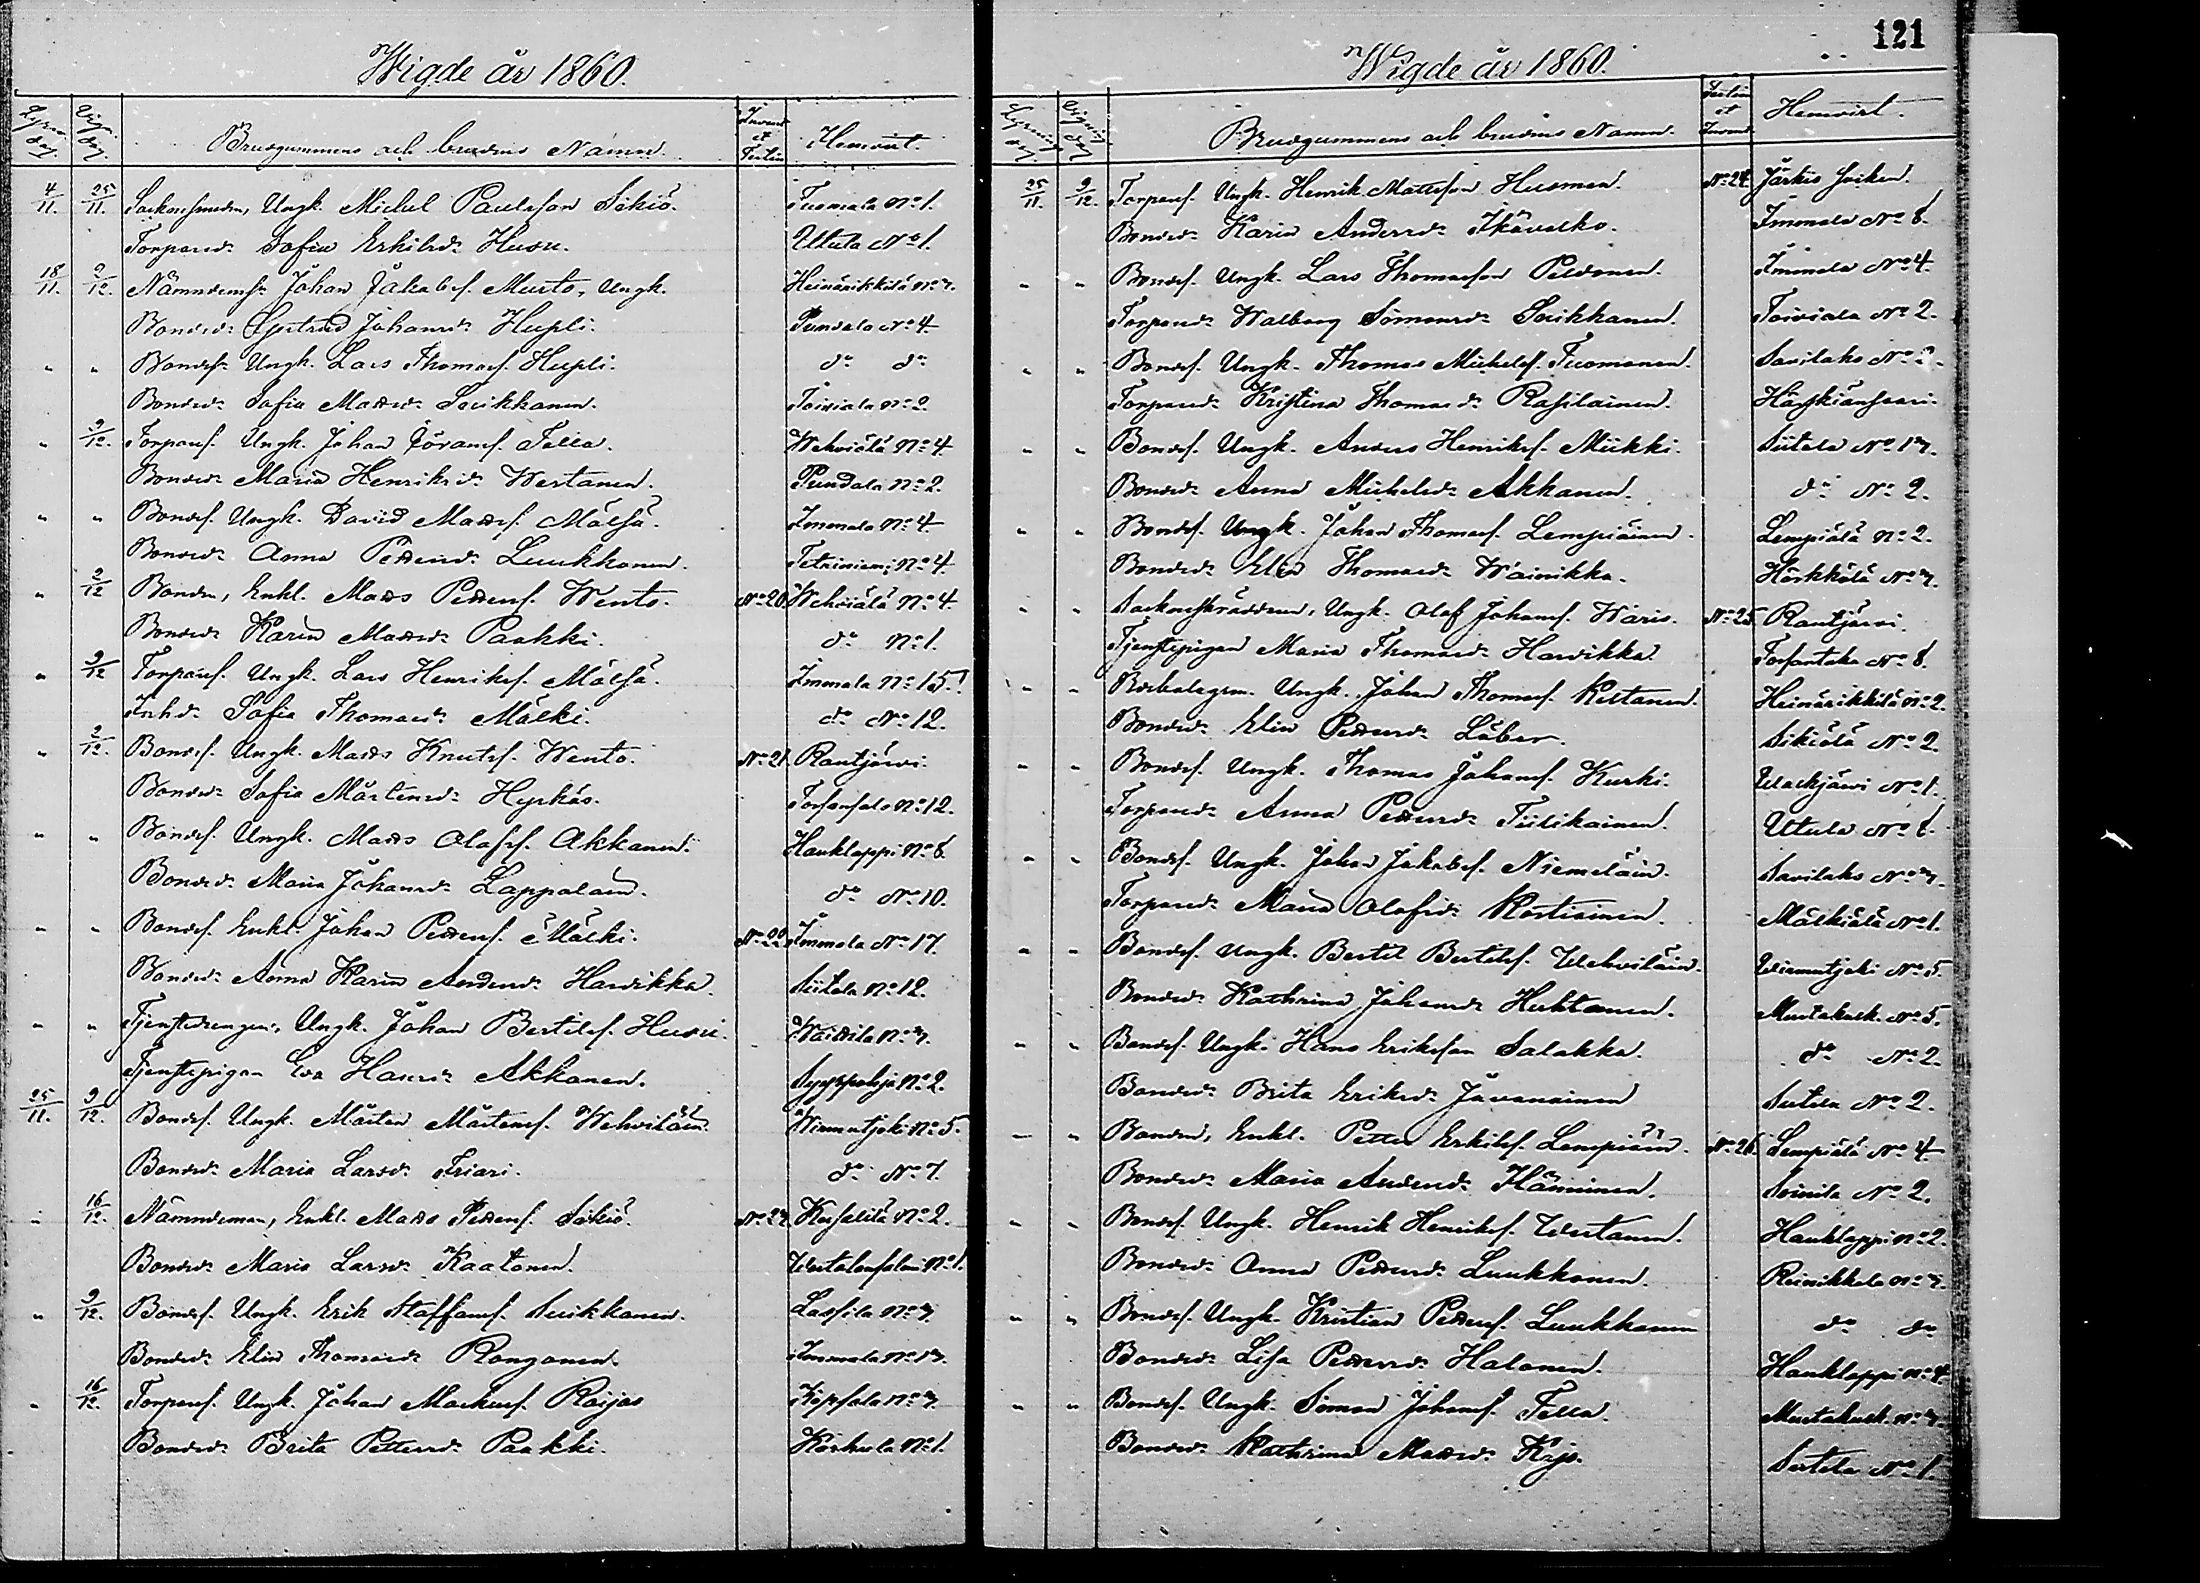 121
Wigde år 1860.
Brudgummens och brudens Namn. Hemvist.
4/11. 25/11. Socknesmeden, Ungk. Michel Paulsson Sikiö. Tuomala No 1.
Torpared:r Sofia Erkilsd:r Husu. Uttula No 1.
18/11. 2/12. Nämndems: Johan Jakobsf. Musto, Ungk. Heinärikkilä No 7.
Bonded:r Gertrud Johansd:r Hupli. Pundala No 4
" " Bondes: Ungk. Lars Thomasf. Hupli. d:o d:o
Bonded:r Sofia Mattsd:r Suikkanen. Toiviala No 2.
" 9/12. Torparef. Ungk. Johan Göransf. Tella. Wehviälä No 4
Bonded:r Maria Henriksd:r Wertanen. Pundala No 2.
" " Bondef. Ungk. David Mattsf. Mälsä. Immala No 4
Bonded:r Anna Pettersd:r Luukkonen. No 4.
" 2/12 Bonden, Enkl. Matts Pettersf. Wento. No 20. Wehviälä No 4.
Bonded:r Karin Mattsd:r Paakki. d:o No 1.
" 9/12 Torparef. Ungk. Lars Henriksf. Mälsä. Immala No 15.
Inhd:r Sofia Thomasd:r Mälki. d:o No 12.
" 2/12. Bondef. Ungk. Matts Knutsf. Wento. No 21. Rautjärvi.
Bonded:r Sofia Mårtensd:r Hyrkäs. No 12.
" " Bondef. Ungk. Matts Olofsf. Akkanen. Hauklappi No 8.
Bonded:r Maria Johansd:r Lappalain. d:o No 10.
" " Bondef. Enkl. Johan Pettersf. Mälki. No 22. Immola No 17.
Bonded:r Anna Karin Andersd:r Harvikka. Siitola No 12.
" " Tjenstedrengen, Ungk. Johan Bertilsf. Husu.
Tjenstepigan Eva Hansd:r Akkanen. Syyspohja No 2.
25/11. 9/12. Bondef. Ungk. Mårten Mårtensf. Wehviläin. Wirmutjoki No 5.
Bonded:r Maria Larsd:r Friari. d:o No 7.
" 16/12. Nämndeman, Enkl. Matts Pettersf. Sikiö. No 23. No 2.
Bonded:r Maria Larsd:r Kaatonen. No 1.
" 9/12. Bondef. Ungk. Erik Staffansf. Suikkanen. Lassila No 3.
Bonded:r Elin Thomasd:r Rongonen. Immala No 13.
" 16/12. Torparef. Ungk. Johan Markusf. Raijas
Bonded:r Brita Pettersd:r Paakki. Karhula No 1.
Wigde år 1860.
Brudgummens och brudens Namn. Hemvist.
25/11. 9/12. Torparef. Ungk. Henrik Mattsson Husmen. No 24. Jäskis Socken.
Bonded:r Karin Andersd:r Ikävalko. Immala No 8.
" " Bondef. Ungk. Lars Thomasson Peldonen. Immala No 4.
Torpared:r Walborg Simonsd:r Suikkanen. Toiviala No 2.
" " Bondef. Ungk. Thomas Michelsf. Tuomanen. Savilaks No 2.
Torpared:r Kristina Thomasd:r Rasilainen. Härskiänsaari.
" " Bondef. Ungk. Anders Henriksf. Miikki. Siitola No 17.
Bonded:r Anna Michelsd:r Akkanen. d:o No 2.
" " Bondef. Ungk. Johan Thomasf. Lempiäinen. Lempiälä No 2.
Bonded:r Elin Thomasd:r Wainikka. Härkkälä No 7.
" " Sockneskräddaren, Ungk. Olof Johansf. Wäris. No 25. Rautjärvi.
Tjenstepigan Maria Thomasd:r Harvikka. No 8.
" " Ungk. Johan Thomasf. Kettanen. Heinärikkilä No 2.
Bonded:r Elin Pettersd:r Läber. Sikiälä No 2.
" " Bondef. Ungk. Thomas Johansf. Kurki. No 1.
Torpared:r Anna Pettersd:r Tiilikainen. Utula No 8.
" " Bondef. Ungk. Johan Jakobsf. Niemeläin. Savilaks No 7.
Torpared:r Maria Olofsd:r Kostiainen. Mälkiälä No 1.
" " Bondef. Ungk. Bertil Bertilsf. Wehviläin. Wirmutjoki No 5.
Bonded:r Kathrina Johansd:r Huhtanen. Mustakulk. No 5.
" " Bondef. Ungk. Hans Eriksson Salakka. d:o No 2.
Bonded:r Brita Eriksd:r Jävanainen No 2.
" " Bonden, Enkl. Petter Erkilsf. Lempiäin. No 26. Lempiälä No 4
Bonded:r Maria Andersd:r Hänninen. No 2.
" " Bondef. Ungk. Henrik Henriksf. Wertanen. Hauklappi No 2.
Bonded:r Anna Pettersd:r Luukkonen. Reinikkala No 3.
" " Bondef. Ungk. Kristian Pettersf. Luukkonen d:o d:o
Bonded:r Lisa Pettersd:r Halonen. Hauklappi No 4
" " Bondef. Ungk. Simon Johansf. Tella. Mustakulk. No 7.
Bonded:r Kathrina Mattsd:r No 1.